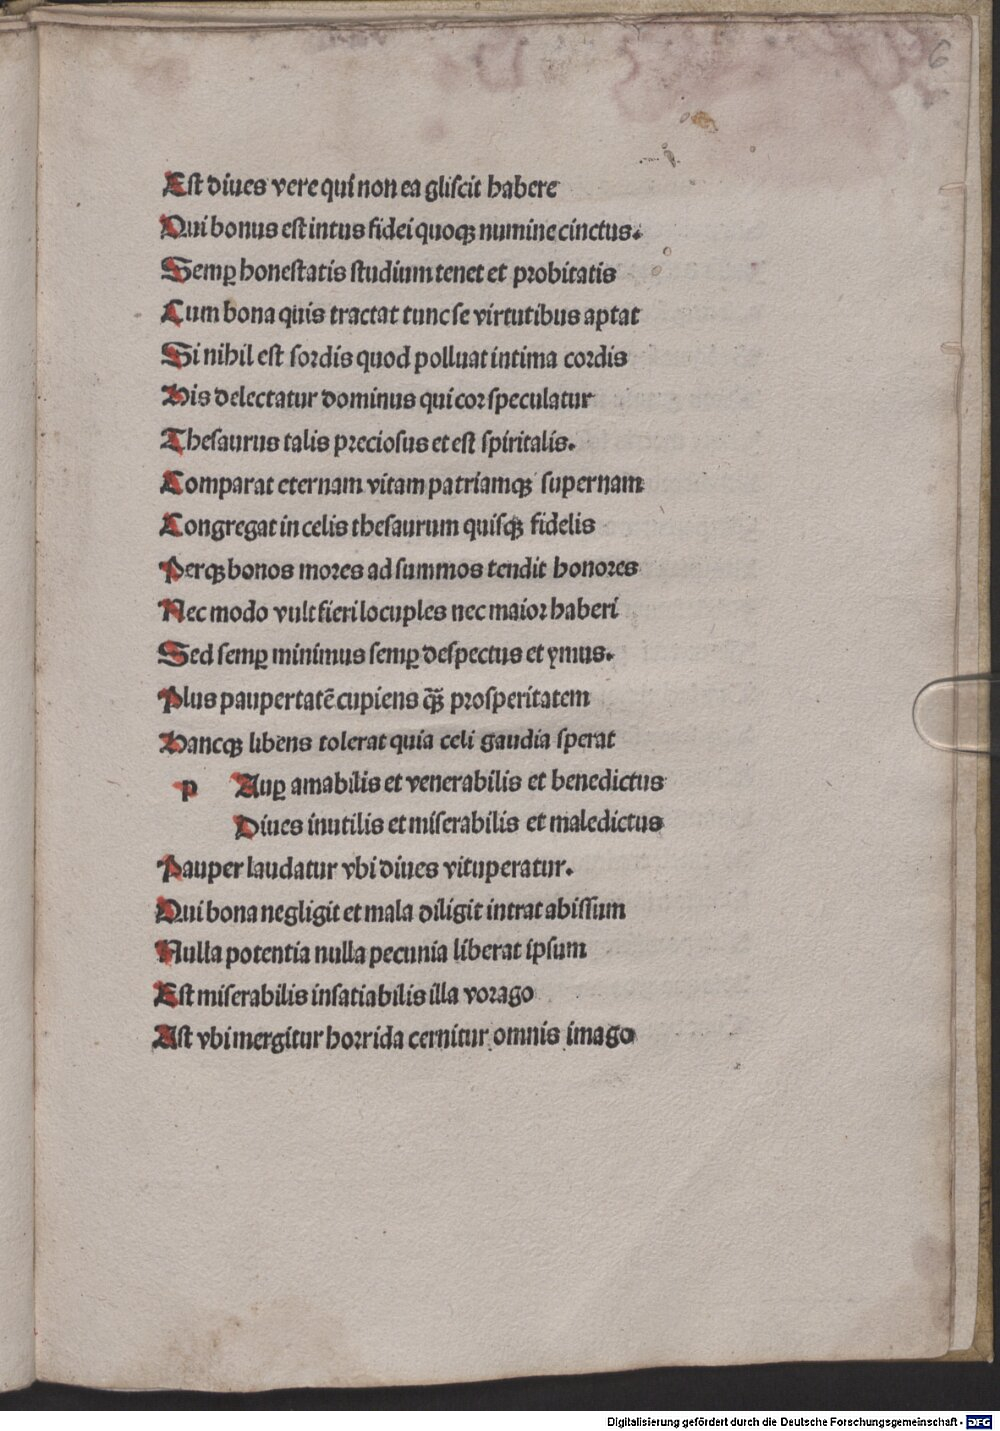 6
Est diues vere qui non ea gliscit habere
Qui bonus est intus fidei quoqꝫ numine cinctus.
Semꝑ honestatis studium tenet et probitatis
Cum bona quis tractat tunc se virtutibus aptat
Si nihil est sordis quod polluat intima cordis
His delectatur dominus qui cor speculatur
Thesaurus talis preciosus et est spiritalis.
Comparat eternam vitam patriamqꝫ supernam
Congregat in celis thesaurum quisqꝫ fidelis
Perqꝫ bonos mores ad summos tendit honores
Nec modo vult fieri locuples nec maior haberi
Sed semꝑ minimus semꝑ despectus et ymus.
Plus paupertatē cupiens q̄ꝫ prosperitatem
Hancqꝫ libens tolerat quia celi gaudia sperat
p Auꝑ amabilis et venerabilis et benedictus
Diues inutilis et miserabilis et maledictus
Pauper laudatur vbi diues vituperatur.
Qui bona negligit et mala diligit intrat abissum
Nulla potentia nulla pecunia liberat ipsum
Est miserabilis insatiabilis illa vorago
Ast vbi mergitur horrida cernitur omnis imago
Digitalisierung gefördert durch die Deutsche Forschungsgemeinschaft - DFG